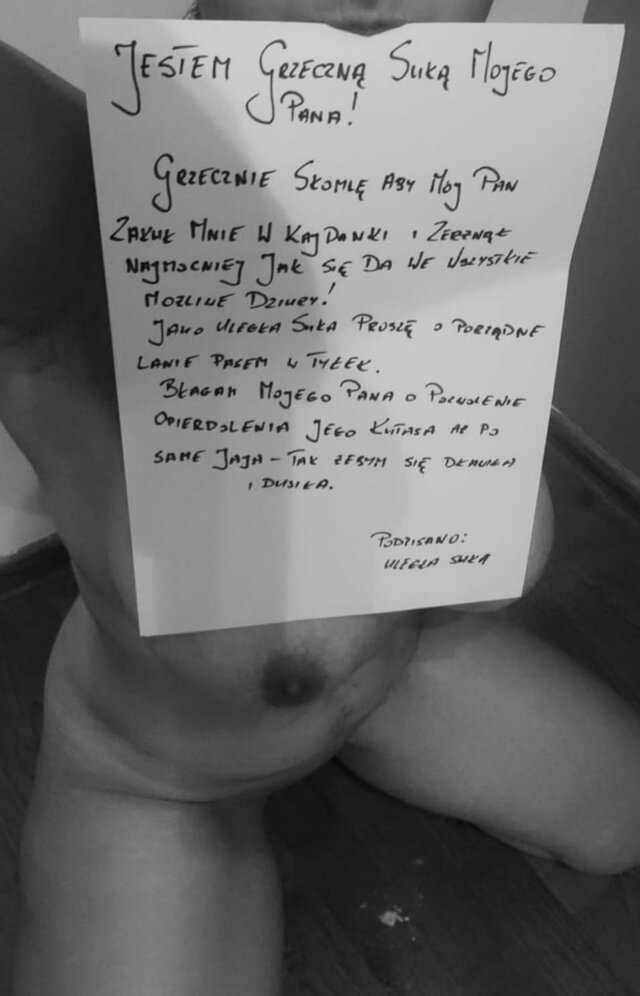 JESTEM GRZECZNĄ SUKĄ MOJEGO
PANA!
GRZECZNIE SKOMLĘ ABY MÓJ PAN
ZAKUŁ MNIE W KAJDANKI I ZERZNĄŁ
NAJMOCNIEJ JAK SIĘ DA WE WSZYSTKIE
MOŻLIWE DZIURY!
JAKO ULEGŁA SUKA PROSZĘ O PORZĄDNE
LANIE PASEM W TYŁEK.
BŁAGAM MOJEGO PANA O POZWOLENIE
OPIERDOLENIA JEGO KUTASA AŻ PO
SAME JAJA - TAK ŻEBYM SIĘ DŁAWIŁA
I DUSIŁA.
PODPISANO:
ULEGŁA SUKA